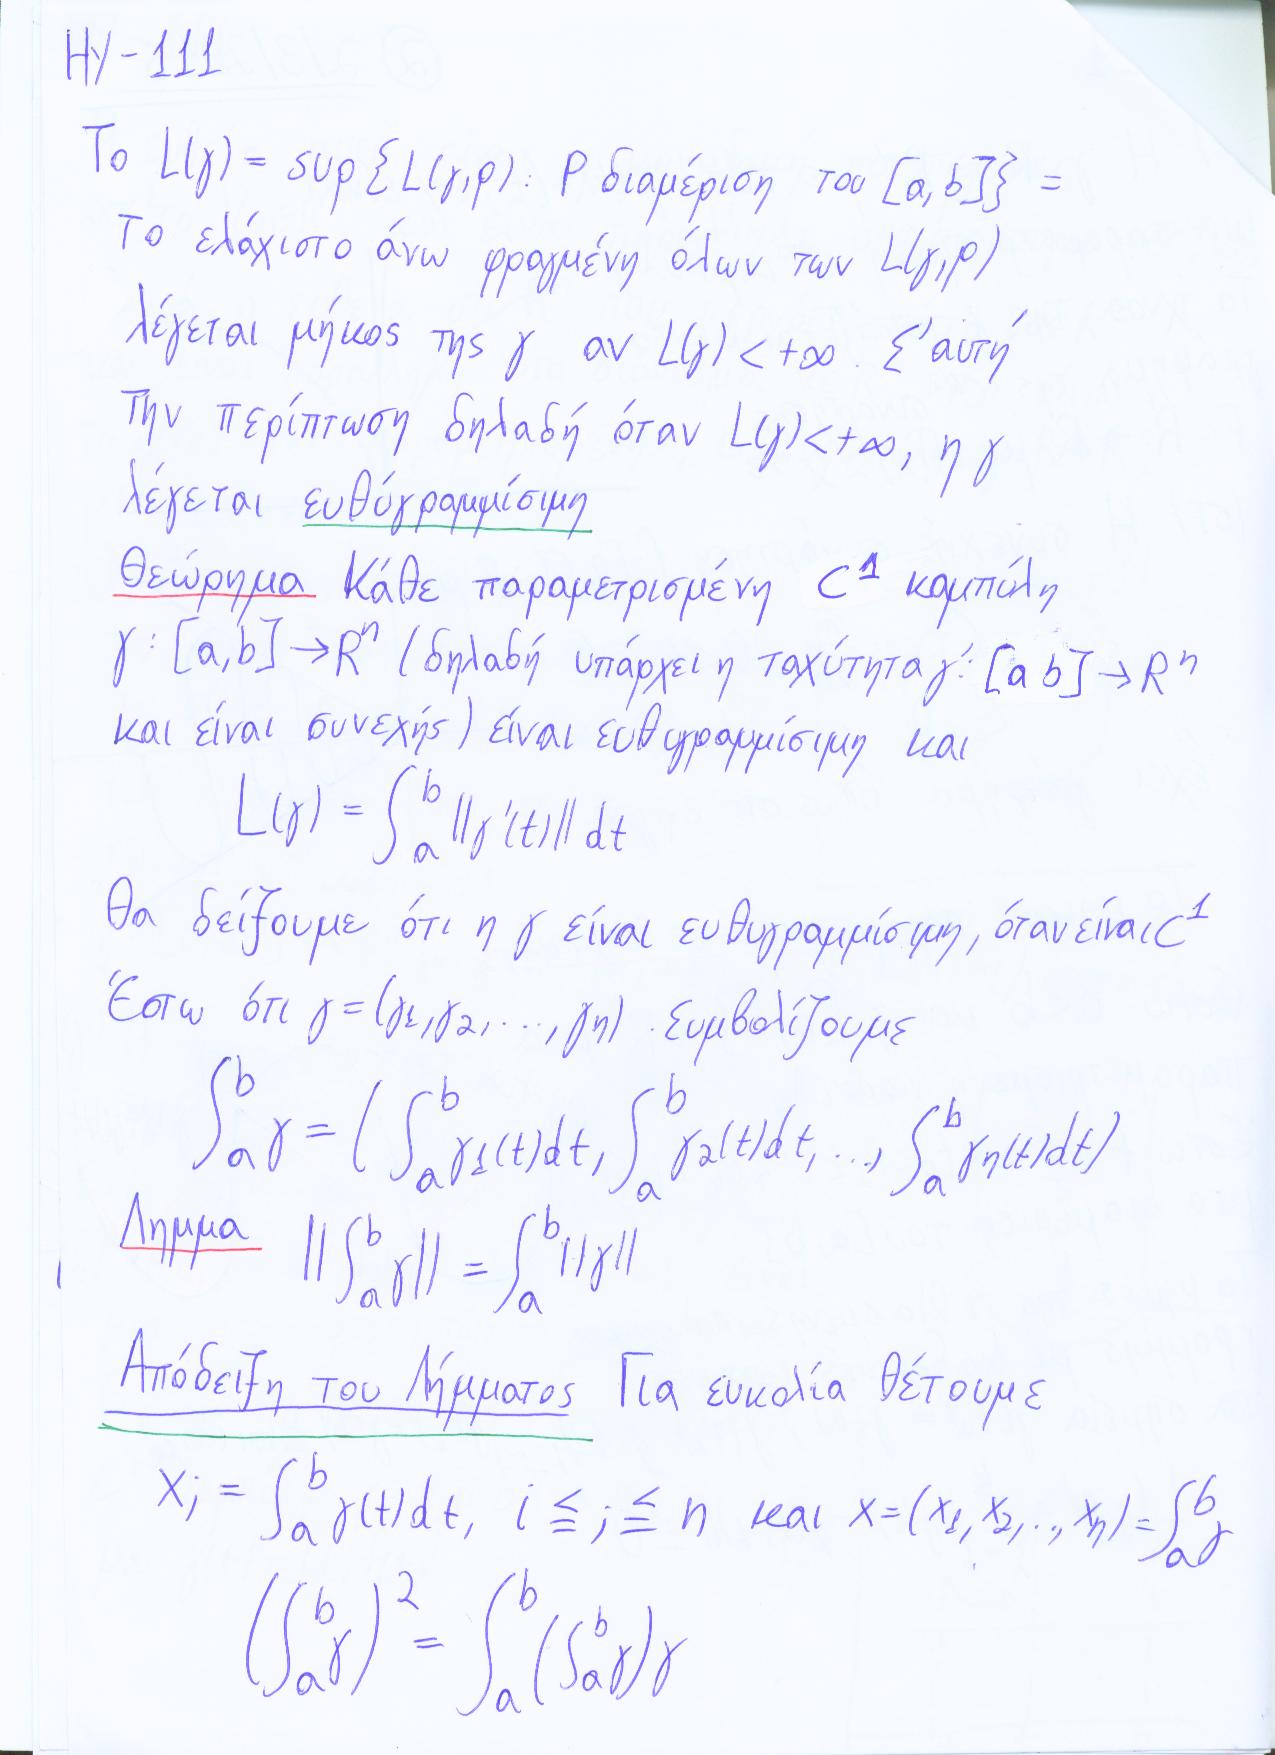 ΗΥ-111
Το L(γ) = sup{L(γ,ρ): Ρ διαμέριση του [a,b]} =
το ελάχιστο άνω φραγμένη όλων των L(γ,ρ)
λέγεται μήκος της γ αν L(γ) < +∞. Σ'αυτή
την περίπτωση δηλαδή όταν L(γ)<+∞, η γ
λέγεται ευθύγραμμίσιμη
Θεώρημα Κάθε παραμετρισμένη C¹ καμπύλη
γ: [a,b] → Rⁿ (δηλαδή υπάρχει η ταχύτητα γ': [a b] → Rⁿ
και είναι συνεχής) είναι ευθυγραμμίσιμη και
L(γ) = ∫ₐᵇ ||γ'(t)|| dt
Θα δείξουμε ότι η γ είναι ευθυγραμμίσιμη, όταν είναι C¹
Έστω ότι γ=(γ₁,γ₂,...,γη). Συμβολίζουμε
∫ₐᵇ γ = (∫ₐᵇ γ₁(t)dt, ∫ₐᵇ γ₂(t)dt, ..., ∫ₐᵇ γη(t)dt)
Λημμα ||∫ₐᵇ γ|| = ∫ₐᵇ ||γ||
Απόδειξη του Λήμματος Για ευκολία θέτουμε
xⱼ = ∫ₐᵇ γ(t)dt, i ≦ j ≦ n και x=(x₁,x₂,..,xη) = ∫ₐᵇ γ
(∫ₐᵇ γ)² = ∫ₐᵇ (∫ₐᵇ γ)γ